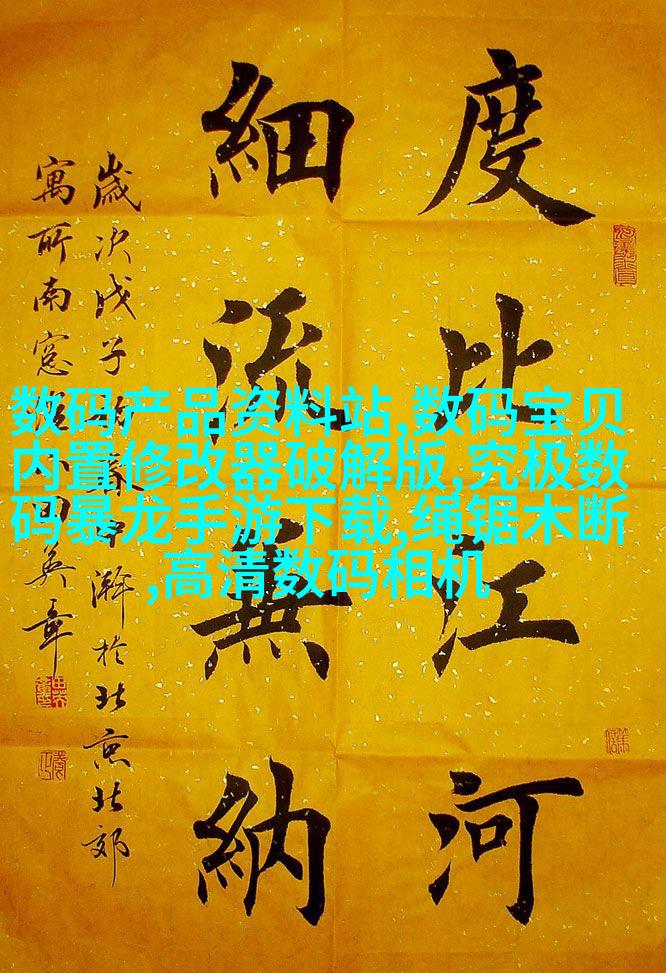 度比江河
細流無納
歲次戊子 於北京北郊
寓所南窓 田英章
数码产品资料站,数码宝贝
内置修改器破解版,究极数
码暴龙手游下载,绳锯木断
,高清数码相机